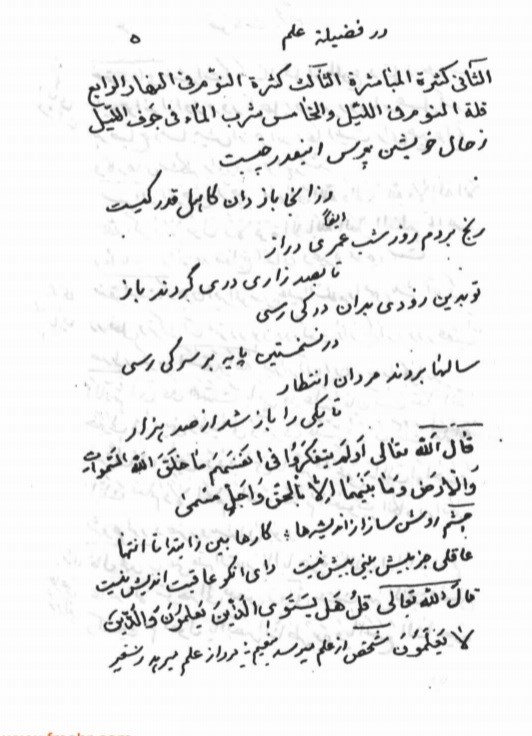 در فضیلة علم ۵
الثانی کثرة المباشرة الثالث کثرة النوم فی النهار الرابع
قلة النوم فی اللیل والخامس شرب الماء فی جوف اللیل
ز حال خویشتن پرس اینقدر چیست
وزانجا باز دان کاهل قدر کیست
ایضاً
رنج بردم روز شب عمری دراز
تا بصد زاری دری کردند باز
تو بدین زودی بران در کی رسی
در نخستین پایه بر سر کی رسی
سالها بردند مردان انتظار
تا یکی را باز شد از صد هزار
قال الله تعالی اولم یتفکروا فی انفسهم ما خلق الله السموات
والارض وما بینهما الا بالحق واجل مسمی
چشم روشن ساز از اندیشه‌ها کارها بین ز ابتدا تا انتها
عاقلی جز پیش بینی پیش نیست وای انکو عاقبت اندیش نیست
قال الله تعالی قل هل یستوی الذین یعلمون والذین
لا یعلمون شخص از علم میرسد پرواز علم میدهد